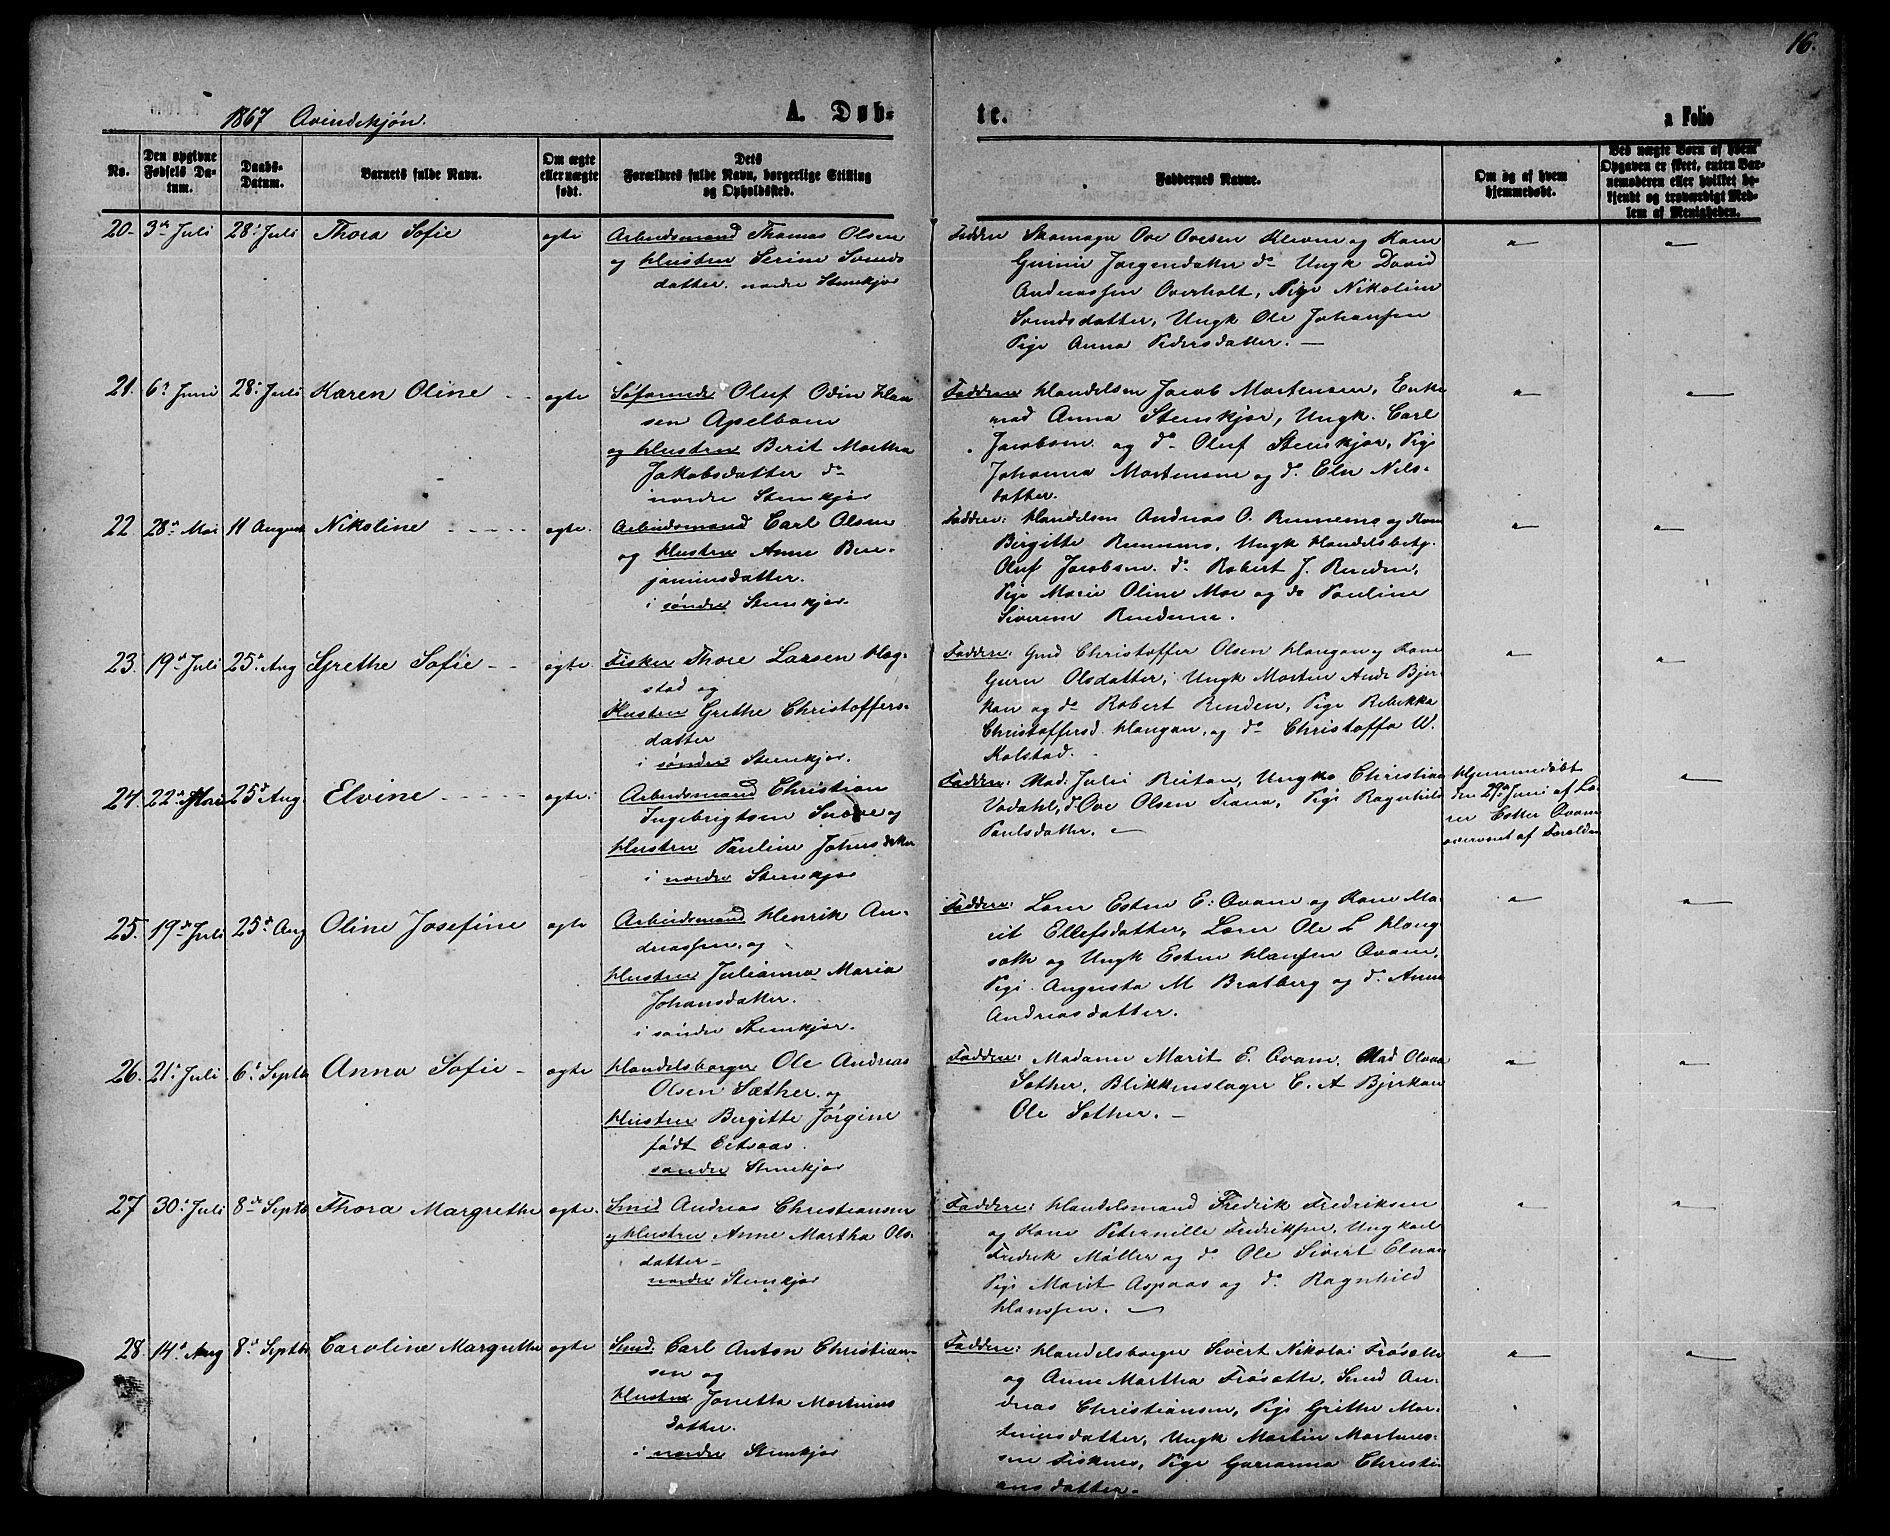 16.
1867 Qvindekjøn.
A. Døb-
te.
a Folio
No.
Den opgivne
Fødsels Da-
tum.
Daabs-
Datum.
Barnets fulde Navn.
Om ægte
eller uægte
født.
Dets
Forældres fulde Navn, borgerlige Stilling
og Opholdssted.
Faddernes Navne.
Om og af hvem
hjemmedøbt.
Ved uægte Børn af hvem
Opgaven er skeet, enten Bar-
nemoderen eller hvilket be-
kjendt og troværdigt Med-
lem af Menigheden.
20 3de Juli 28de Juli Thora Sofie ægte
Arbeidsmand Thomas Olsen
og Hustru Serine Svends
datter. nordre Stenkjær
Faddere Skomager Ove Ovesen Kleven og Kone
Jørgensdatter do Ungk David
Andreassen Overholt, Pige Nikoline
Svendsdatter, Ungk Ole Johansen
Pige Anna Pedersdatter.
21. 6te Juni 28de Juli Karen Oline ægte
Søfarende Oluf Odin Han
sen Apelbom
og Hustru Berit Martha
Jakobsdatter do
nordre Stenkjær
Faddere Handelsm Jacob Mortensen, Enke
mad Anna Stenkjær, Ungk. Carl
Jacobsen og do Oluf Stenkjær, Pige
Johanna Mortensen og do Elen Nils-
datter.
22 28de Mai 11 August Nikoline ægte.
Arbeidsmand Carl Olsen
og Hustru Anne Ben-
jaminsdatter.
i søndre Stenkjær.
Faddere: Handelsm Andreas O. Rennems og Kone
Birgitte Rennems, Ungk Handelsbetj.
Oluf Jacobsen. do Robert J. Renden,
Pige Marie Oline Moe og do Pauline
Siverine Rendene.
23. 19de Juli 25de Aug Grethe Sofie ægte.
Fisker Thore Larsen Hag-
stad og
Hustru Grethe Christoffers-
datter
i søndre Stenkjær.
Faddere: Gmd Christoffer Olsen Haugan og Kone
Guru Olsdatter, Ungk Morten And: Bjer-
kan og do Robert Renden, Pige Rebekka
Christoffersd Haugan, og do Christoffa W.
Kolstad.
24. 22de Mai 25de Aug. Elvine ægte.
Arbeidsmand Christian
Ingebrigtsen Snove og
Hustru Pauline Johnsdatter
i nordre Stenkjær
Faddere: Mad: Juli Reitan, Ungka Christian
Vodahl, do Ove Olsen Trana, Pige Ragnhild
Paulsdatter.
Hjemmedøbt
den 29de Juni af Læ-
rer Esten Qvam
overværet af Forældrene
25. 19de Juli 25de Aug Oline Josefine ægte
Arbeidsmand Henrik An-
dreassen, og
Hustru Julianna Maria
Johansdatter.
i søndre Stenkjær.
Faddere: Lærer Esten E: Qvam og Kone Ma-
rit Ellefsdatter, Lærer Ole L Haug
sæth og Ungk Esten Hansen Qvam,
Pige Augusta M Bratberg og do Anne
Andreasdatter.
26. 21de Juli 6te Septb Anna Sofie ægte
Handelsborger Ole Andreas
Olsen Sæther. og
Hustru Birgitte Jørgine
født
søndre Stenkjær
Faddere: Madame Marit E. Qvam. Mad Olava
Sæther, Blikkenslager C. A Bjerkan
Ole Sæther.
27 30de Juli 8de Septb Thora Margrethe ægte.
Smed Andreas Christiansen
og Hustru Anne Martha Ols-
datter
nordre Stenkjær
Faddere: Handelsmand Fredrik Fredriksen
og Kone Peternille Fredriksen, Ungkarl
Fredrik Møller og do Ole Sivert Elnan
Pige Marit Aspaas og do Ragnhild
Hanssen.
28. 14de Aug 8de Septb Caroline Margrethe ægte
Smed. Carl Anton Christian-
sen og
Hustru Jonetta Martinus
datter.
i nordre Stenkjær
Faddere: Handelsborger Sivert Nikolai Frøsætte
og Anne Martha Frøsætte, Smed An-
dreas Christiansen, Pige Grethe Mar-
tinusdatter, Ungk Martin Martinus-
sen Fisknes, Pige Gurianna Christi-
ansdatter.